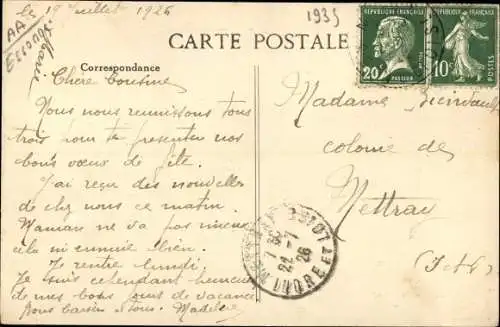 le 19 Juillet 1926
1935
CARTE POSTALE
Correspondance
RÉPUBLIQUE FRANÇAISE
20c
PASTEUR
POSTES
RÉPUBLIQUE FRANÇAISE
10c
POSTES
Chère Cousine
Nous nous reunissons tous
trois pour te presenter nos
bons vœux de fête.
J'ai reçu des nouvelles
de chez nous ce matin.
Maman ne va pas mieux
cela m'ennuie bien.
Je rentre lundi.
Je suis cependant heureuse
de mes bons jours de vacances
Bons baisers à tous. Madeleine
Madame
colonie de
Mettray
(I-et-L)
22 -7
26
INDRE ET